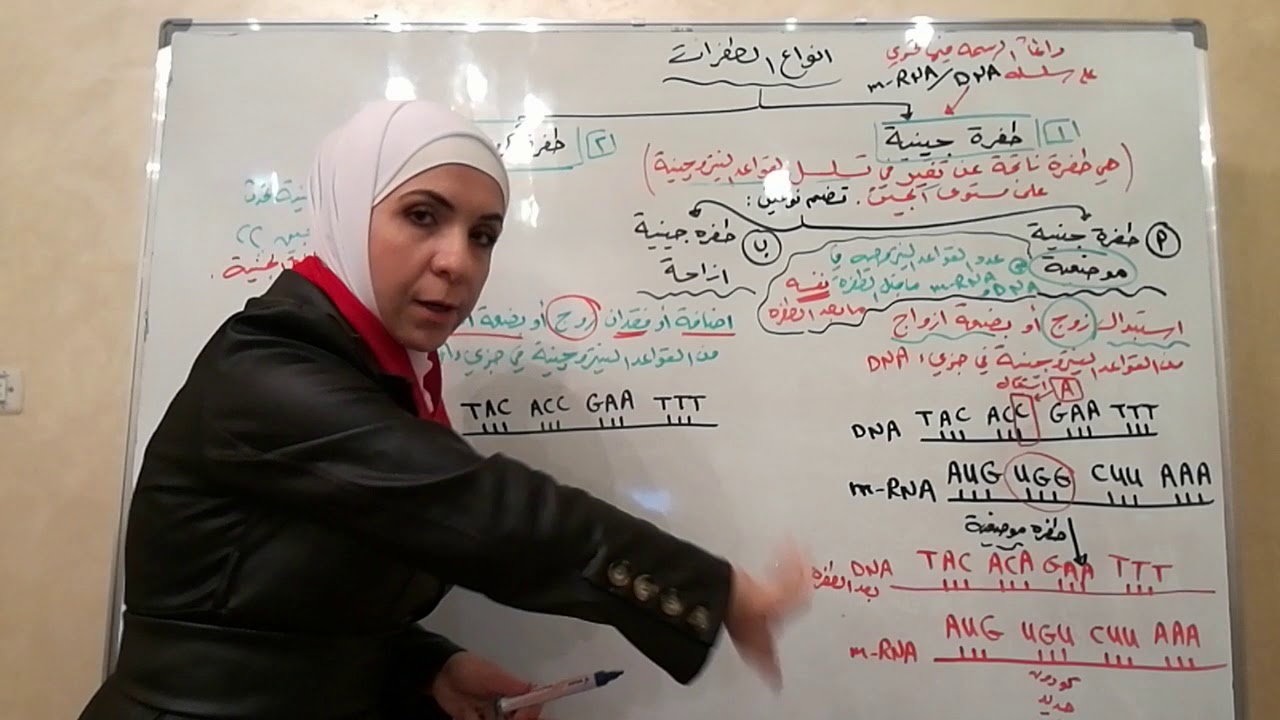 انواع الطفرات
دائماً الرسمة فيها تحتوي
على سلسلة m-RNA/DNA
١ طفرة جينية
٢ طفرة
(هي طفرة ناتجة عن تغير في تسلسل القواعد النيتروجينية)
على مستوى الجين. تضم نوعين:
أ طفرة جينية
موضعية
عدد القواعد النيتروجينية في
DNA و m-RNA ما قبل الطفرة نفسه
ما بعد الطفرة
استبدال زوج أو بضعة ازواج
من القواعد النيتروجينية في جزيء DNA
استبدال A
DNA TAC ACC GAA TTT
m-RNA AUG UGG CUU AAA
طفرة موضعية
DNA TAC ACA GAA TTT
بعد الطفرة
m-RNA AUG UGU CUU AAA
كودون
جديد
ب طفرة جينية
ازاحة
اضافة أو فقدان زوج أو بضعة
من القواعد النيتروجينية في جزيء
TAC ACC GAA TTT